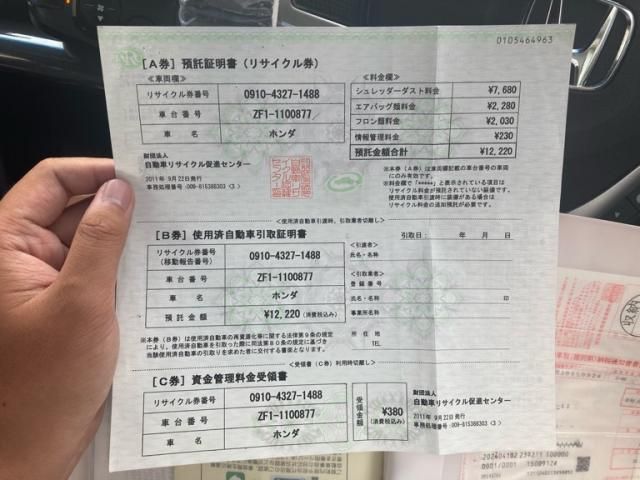 0105464963
[A券] 預託証明書(リサイクル券)
≪車両欄≫
リサイクル券番号 0910-4327-1488
車台番号 ZF1-1100877
車名 ホンダ
財団法人
自動車リサイクル促進センター
2011年 9月22日発行
≪料金欄≫
シュレッダーダスト料金 ¥7,680
エアバッグ類料金 ¥2,280
フロン類料金 ¥2,030
情報管理料金 ¥230
預託金額合計 ¥12,220
※本券(A券)は車両欄記載の車台番号の車両
にのみ有効です。
※料金欄で「*****」と表示されている項目は
リサイクル料金が預託されていない装備です。
使用済自動車引渡時に装備がある場合は
リサイクル料金の追加預託が必要です。
<使用済自動車引渡時、引取業者切離し>
[B券] 使用済自動車引取証明書
引取日: 年 月 日
リサイクル券番号
(移動報告番号) 0910-4327-1488
車台番号 ZF1-1100877
車名 ホンダ
預託金額 ¥12,220 (消費税込み)
<引渡者>
氏名・名称
<引取業者>
登録番号
氏名・名称 印
事業所名
所在地
TEL.
※本券(B券)は使用済自動車の再資源化等に関する法律第9条の規定
により、使用済自動車を引取った際に同法第80条の規定に基づき
当該使用済自動車の引取りを求めた者に交付する書面となります。
<受領書(C券)利用時切離し>
[C券] 資金管理料金受領書
リサイクル券番号 0910-4327-1488
車台番号 ZF1-1100877
車名 ホンダ
受領金額 ¥380
(消費税込み)
財団法人
自動車リサイクル促進センター
2011年 9月22日発行
収納